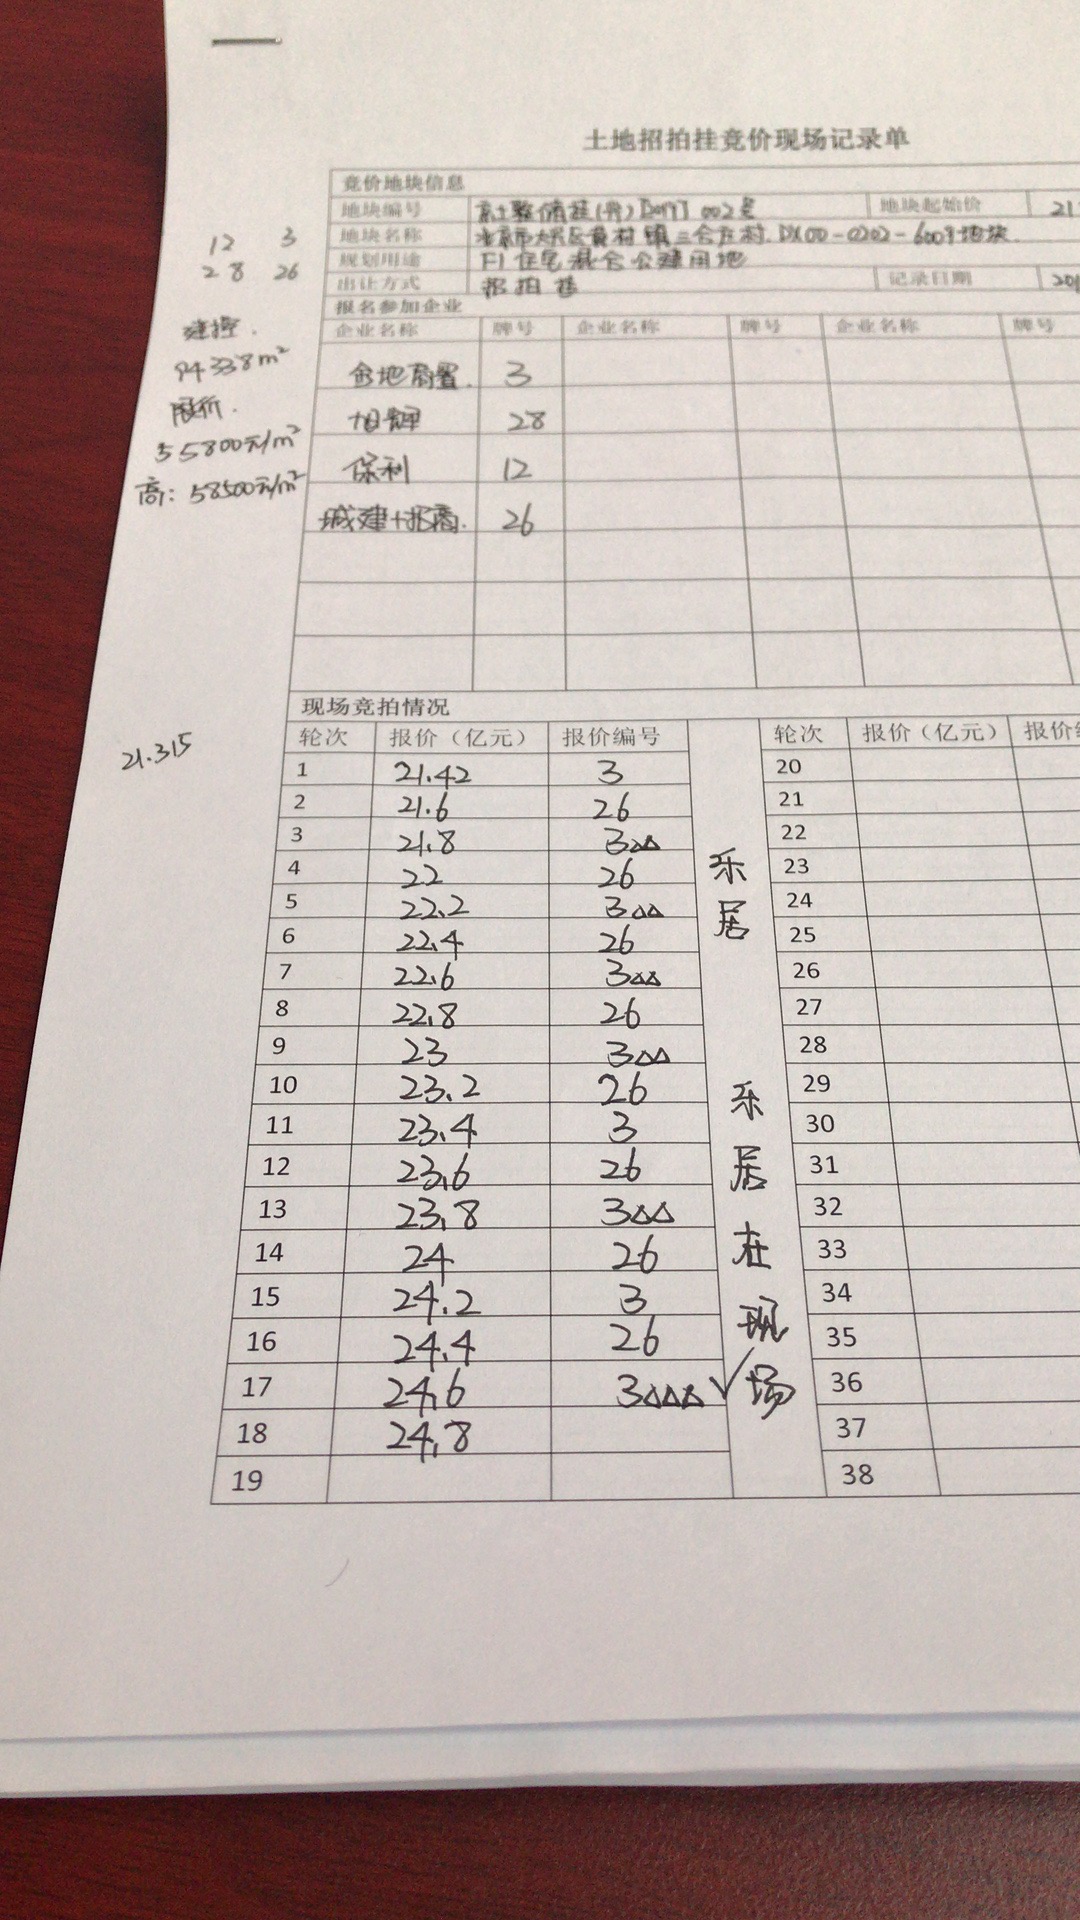 土地招拍挂竞价现场记录单
竞价地块信息
地块编号 京土整储挂(兴)[2017]002号 地块起始价 21
地块名称 北京市大兴区黄村镇三合庄村.DX00-0202-6009地块.
规划用途 F1住宅混合公建用地
出让方式 招拍挂 记录日期 201
报名参加企业
企业名称 牌号 企业名称 牌号 企业名称 牌号
金地商置. 3
旭辉 28
保利 12
城建+招商. 26
12 3
28 26
建控.
94338m²
限价.
55800元/m²
高: 58500元/m²
21.315
现场竞拍情况
轮次 报价（亿元） 报价编号 轮次 报价（亿元） 报价编
1 21.42 3 20
2 21.6 26 21
3 21.8 3△△ 22
4 22 26 23
5 22.2 3△△ 24
6 22.4 26 25
7 22.6 3△△ 26
8 22.8 26 27
9 23 3△△ 28
10 23.2 26 29
11 23.4 3 30
12 23.6 26 31
13 23.8 3△△ 32
14 24 26 33
15 24.2 3 34
16 24.4 26 35
17 24.6 3△△△√ 36
18 24.8 37
19 38
乐居
乐居在现场